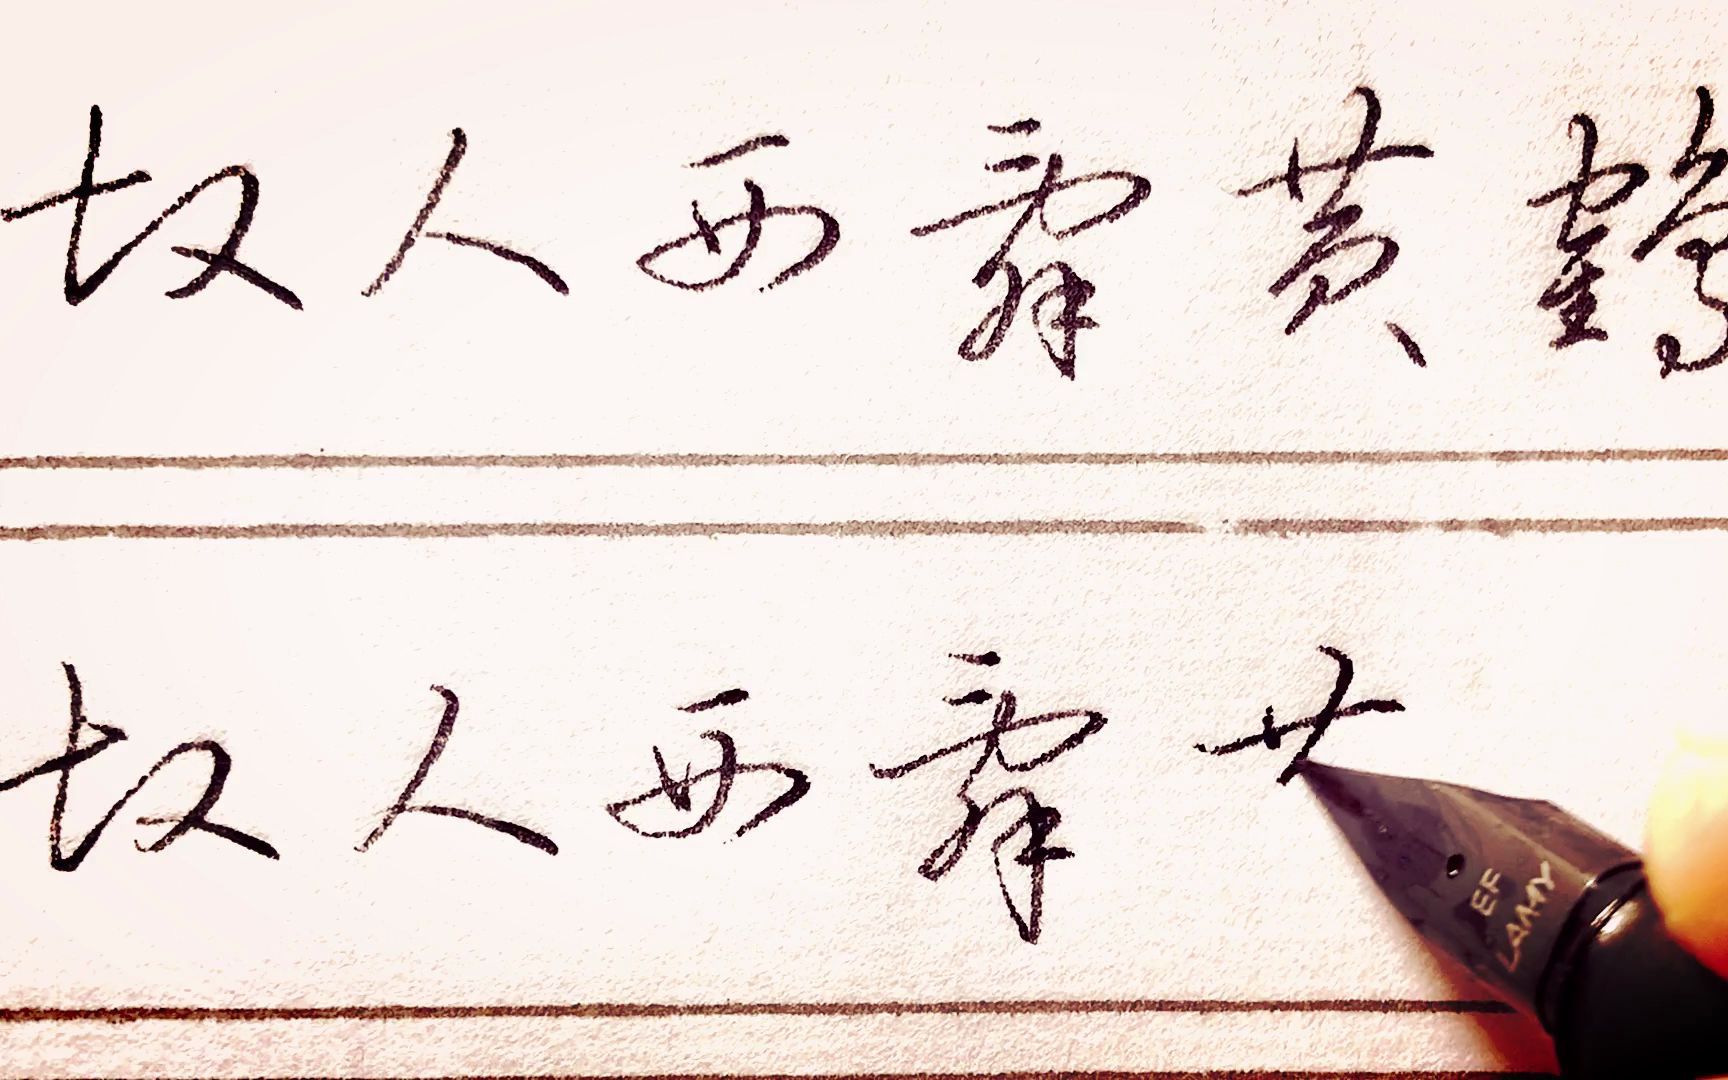 故人西辞黄鹤
故人西辞
EF
LAMY